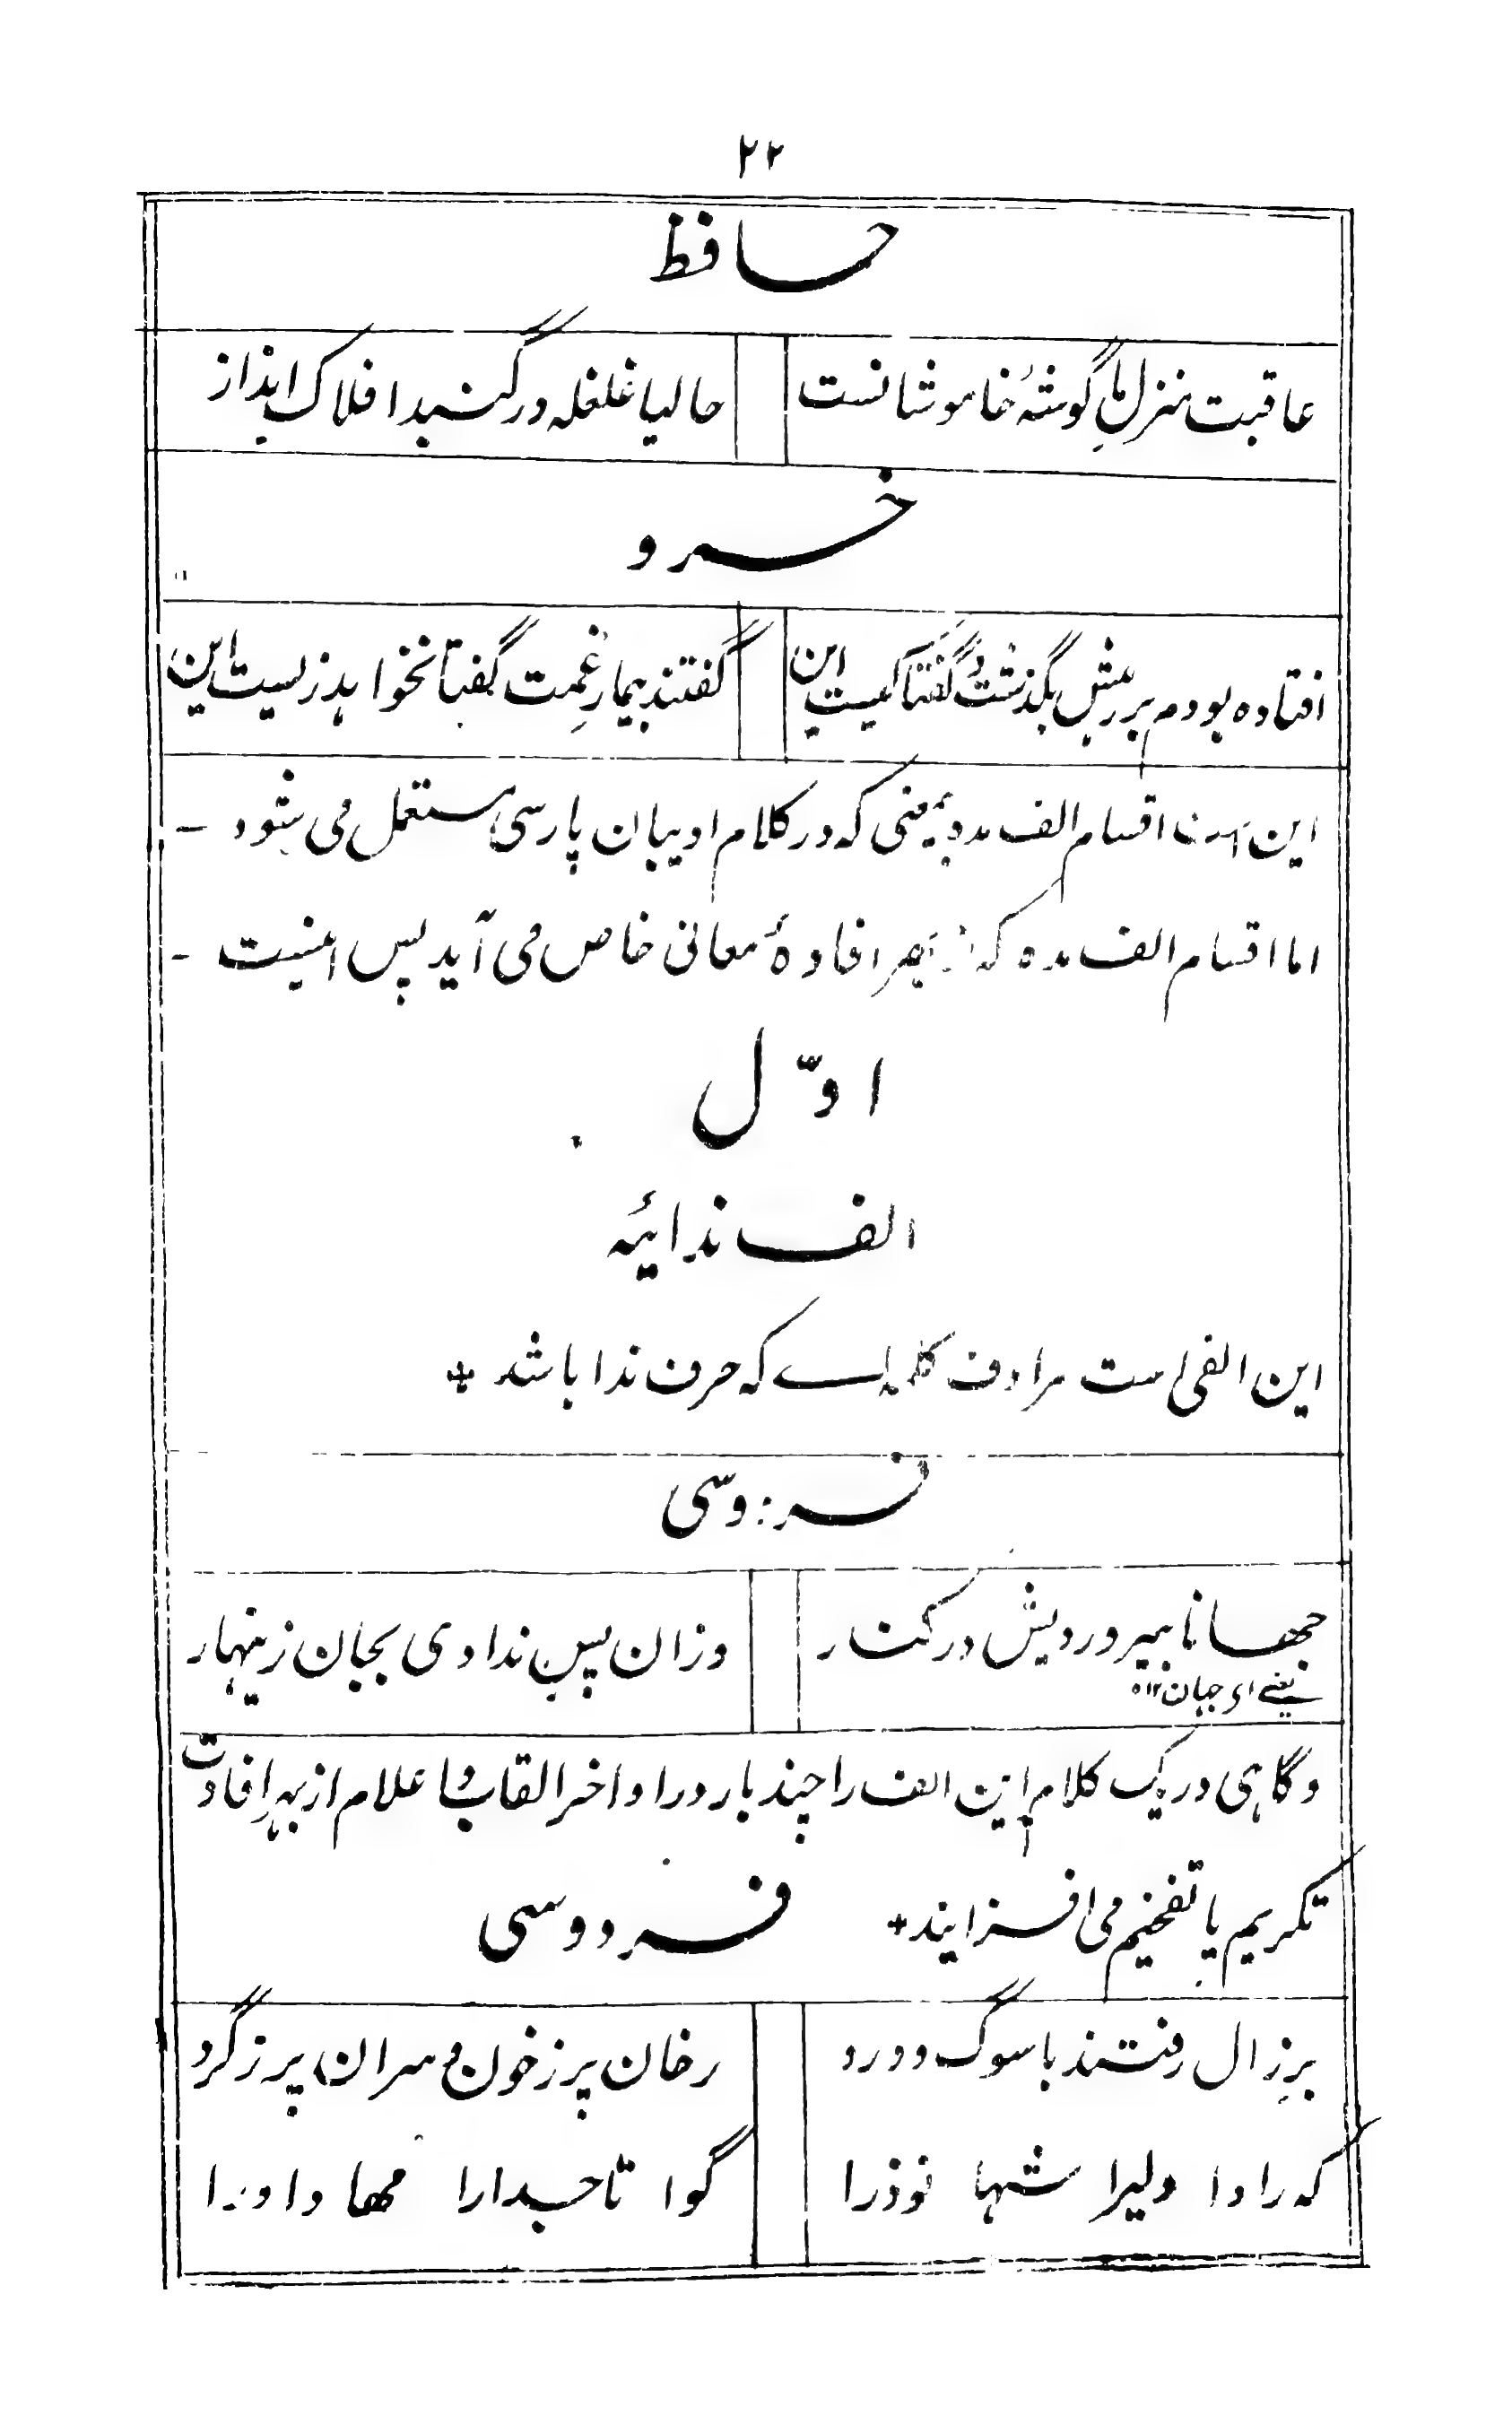 ۲۲
حافظ
عاقبت منزل ما گوشهٔ خاموشانست حالیا غلغله در گنبد افلاک انداز
خسرو
افتاده بودم بر رهش بگذشت و گفتا کیست این گفتند بیمار غمت گفتا نخواهد زیست این
این است اقسام الف مده بمعنی که در کلام ادیبان پارسی مستعمل می شود ـ
اما اقسام الف مده که بهر افادهٔ معانی خاص می آید پس اینست ـ
اوّل
الف ندائیه
این الفی است مرادف کلمه که حرف ندا باشد +
فردوسی
جهانا بپروردیش در کنار وزان پس ندادی بجان زینهار
یعنے ای جهان ۱۲
و گاهی در یک کلام این الف را چند بار در اواخر القاب و اعلام از بهر افادت
تکریم یا تفخیم می افزایند + فردوسی
بر زال رفتند با سوگ و درد رخان پر ز خون و سران پر ز گرد
که رادا دلیرا شها نوذرا گوا تاجدارا مها داورا